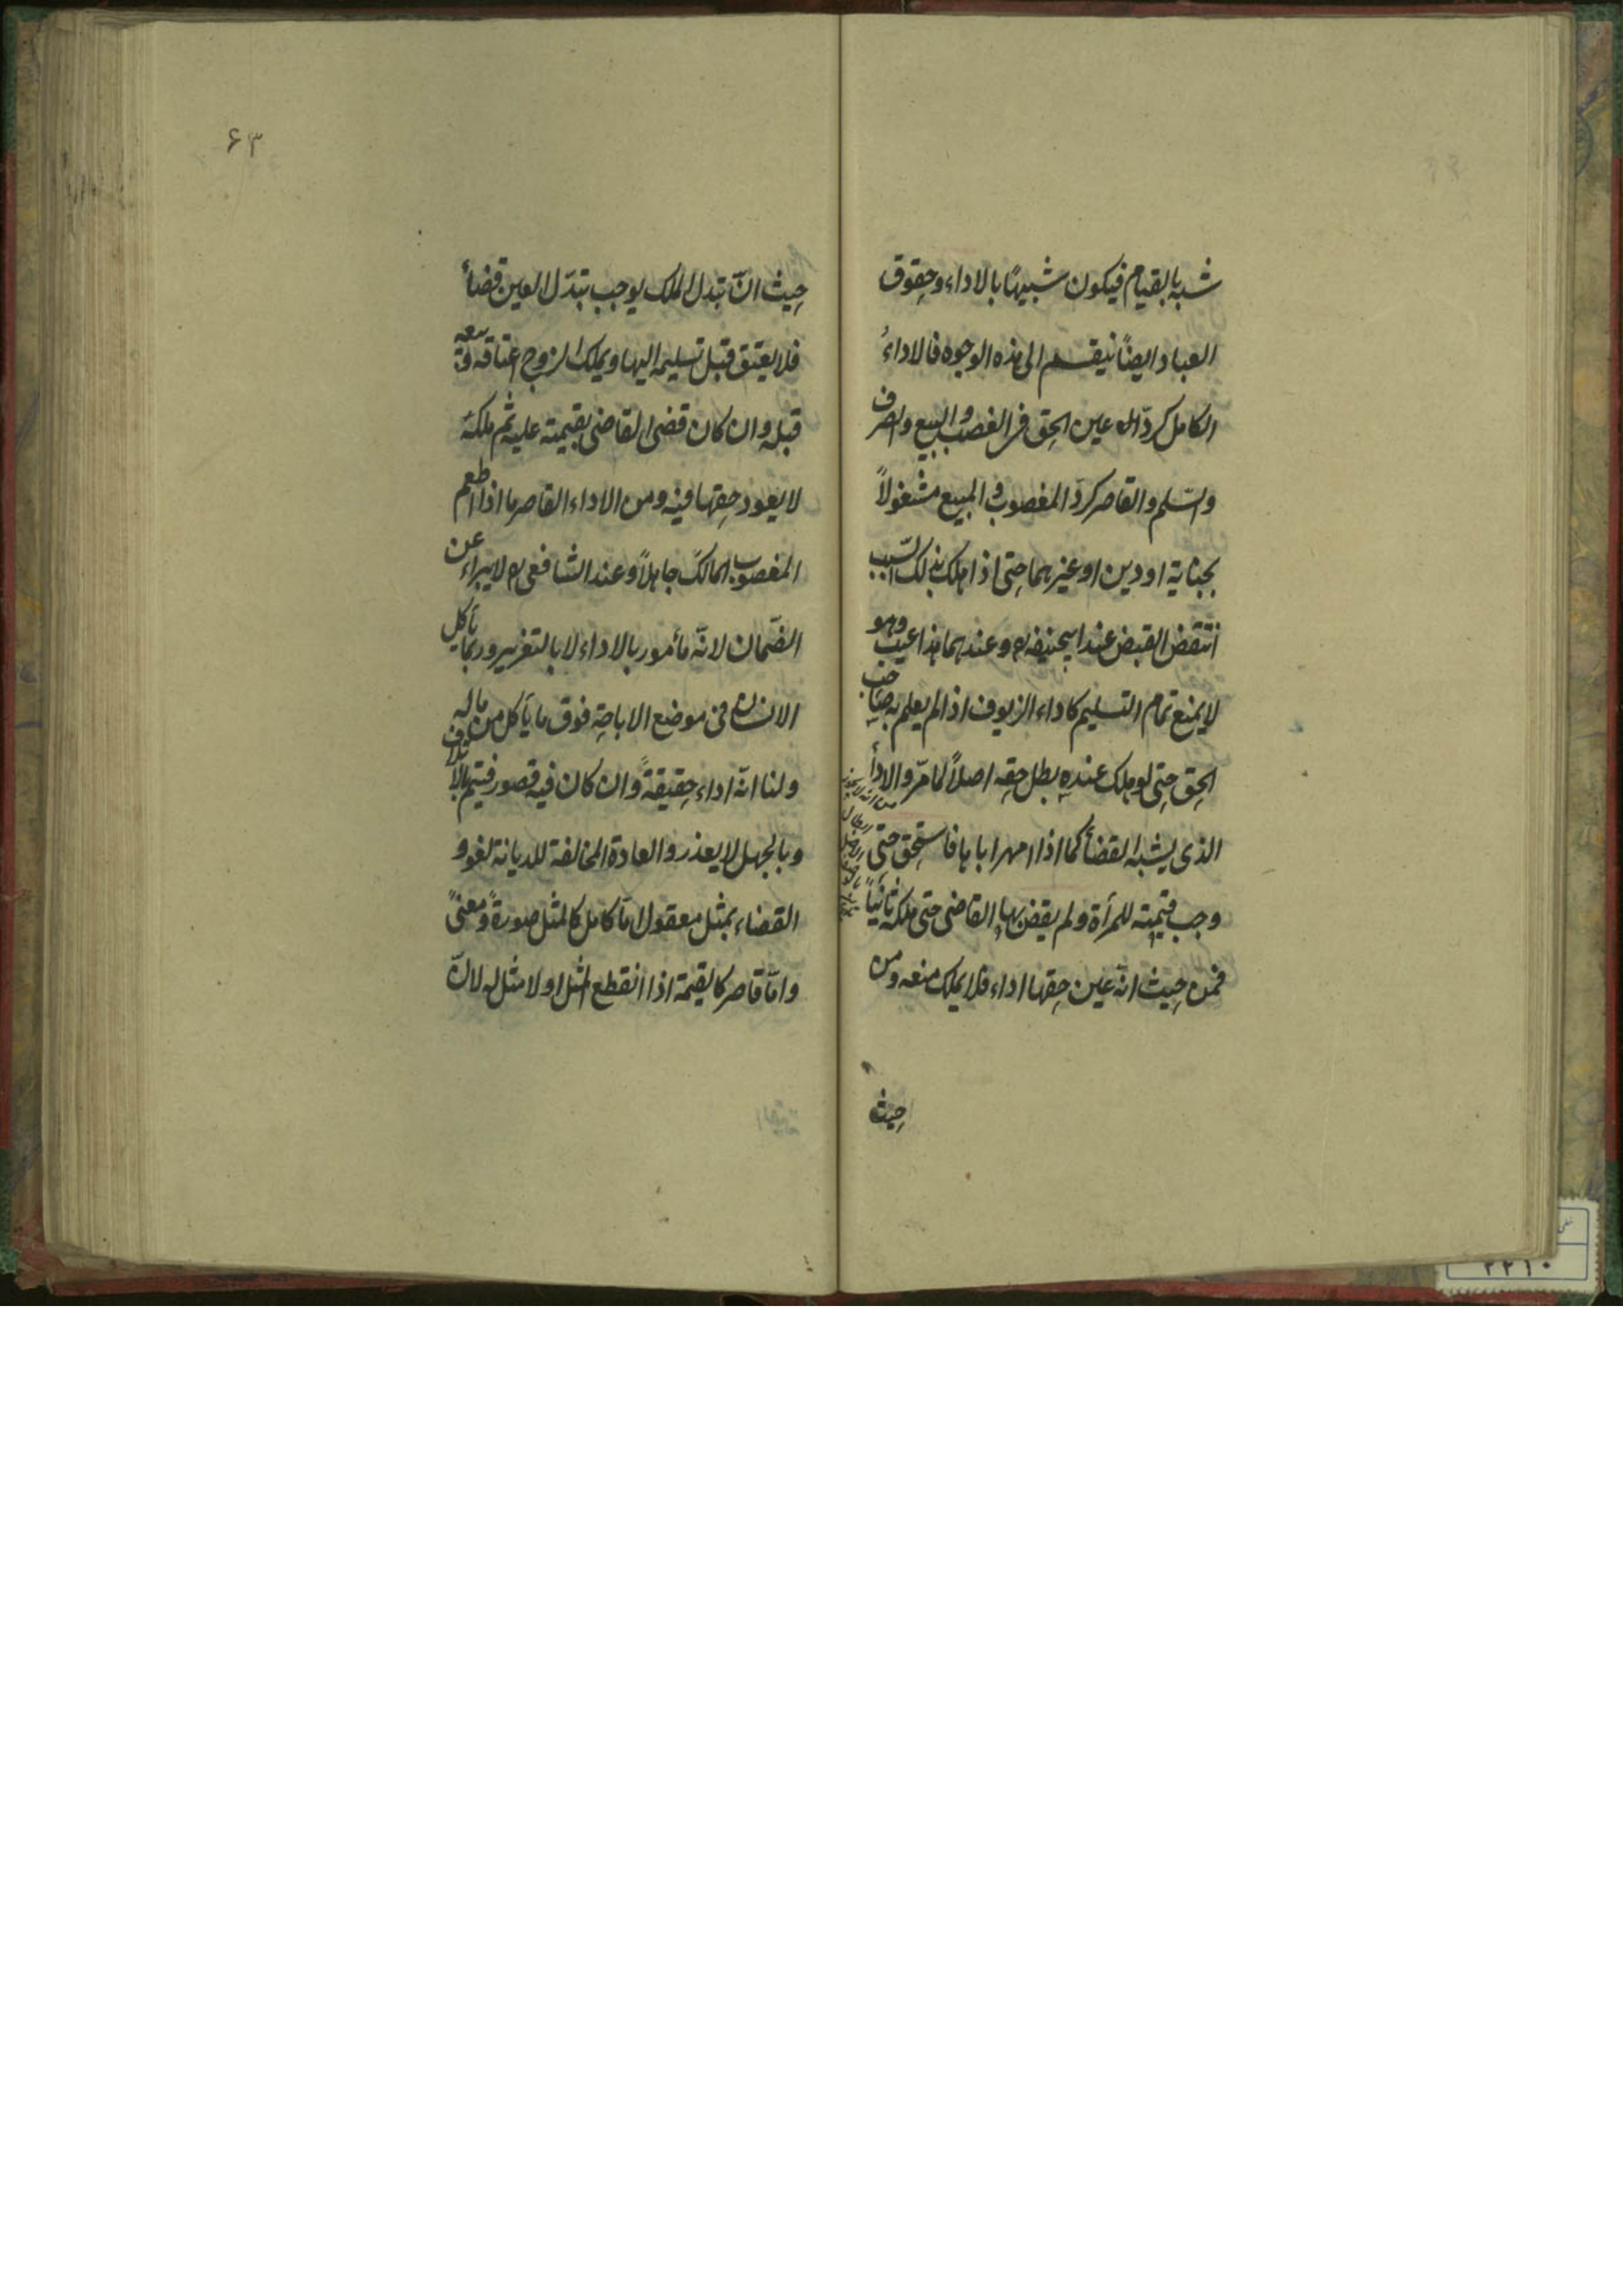 شبه بالقيام فيكون شبيهًا بالاداء وحقوق
العباد ايضًا ينقسم الى هذه الوجوه فالاداءُ
الكامل كردّ عين الحق فى الغصب والبيع والصرف
والسّلم والقاصر كردّ المغصوب والمبيع مشغولاً
بجناية او دين او غيرهما حتى اذا هلك بذلك السّبب
انتقض القبض عند ابيحنيفه رح وعندهما هذا عيب وهو
لا يمنع تمام التسليم كاداء الزيوف اذا لم يعلم به صاحب
الحق حتى لو هلك عنده بطل حقه اصلاً لما مرّ والادأ
الذى يشبه القضأ كما اذا امهر اباها فاستحق حتى
وجب قيمته للمرأة ولم يقض بها القاضى حتى ملكه ثانيًا
فمن حيث انّه عين حقها اداء فلا يملك منعه ومن
حيث
۶۳
حيث انّ تبدل الملك يوجب تبدّل العين قضأ
فلا يعتق قبل تسليمه اليها ويملك الزوج اعتاقه وبيعه
قبله وان كان قضى القاضى بقيمته عليه ثم ملكه
لا يعود حقها فيه ومن الاداء القاصر ما اذا اطعم
المغصوب المالك جاهلاً وعند الشافعى رح لا يبراء عن
الضّمان لانّه مأمور بالاداء لا بالتغرير وربما يأكل
الانسان فى موضع الاباحة فوق ما يأكل من ماله
ولنا انّه اداء حقيقةً وان كان فيه قصور فيتم بالاتلاف
وبالجهل لا يعذر والعادة المخالفة للديانة لغو و
القضاء بمثل معقول امّا كامل كالمثل صورةً ومعنىً
وامّا قاصر كالقيمة اذا انقطع المثل او لا مثل له لانّ
۲۲۱۰